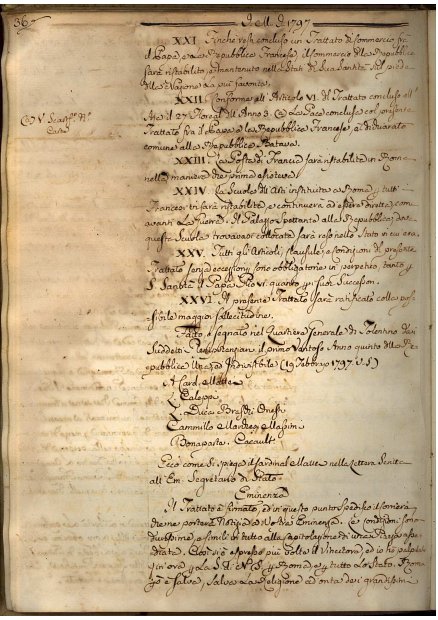 36
dell' A. 1797
XXI. Finchè resti concluso un Trattato di Commercio frà
il Papa, e la Repubblica Francese, il commercio della Repubblica
sarà ristabilito, e mantenuto nelli Stati di Sua Santità sul piede
della Nazione la più favorita.
XXII. Conforme all' Articolo VI. del Trattato concluso all'
Aja li 27. Floreal dell' Anno 3. la Pace conclusa col presente
Trattato frà il Papa, e la Repubblica Francese, è dichiarata
comune alla Repubblica Batava.
XXIII. La Posta di Francia sarà ristabilita in Roma
nella maniera che prima esisteva.
XXIV. La Scuola dell' Arti instituita a Roma per tutti i
Francesi vi sarà ristabilita, e continuerà ad essere diretta come
avanti la Guerra. Il Palazzo spettante alla Repubblica, dove
questa Scuola trovavasi collocata sarà reso nello Stato in cui era.
XXV. Tutti gli Articoli, clausule, e condizioni del presente
Trattato senza eccezione sono obbligatorie in perpetuo, tanto per
S. Santità il Papa Pio VI. quanto per i suoi Successori.
XXVI. Il presente Trattato sarà ratificato colla pos-
sibile maggior sollecitudine.
Fatto, e segnato nel Quartiere Generale di Tolentino dai
suddetti Plenipotenziari il primo Ventoso Anno quinto della Re-
pubblica Una, ed Indivisibile (19 Febbrajo 1797. V. S.)
A Card. Mattei
L. Caleppi
L. Duca Braschi Onesti
Cammillo Marchese Massimi
Bonaparte. Cacault.
Ecco come si spiega il Cardinal Mattei nella Lettera scritta
all' Em. Segretario di Stato.
Eminenza
Il Trattato è firmato, ed in questo punto spedisco il Corriere
che ne porterà Notizia a Vostra Eminenza. Le condizioni sono
durissime, e simili in tutto alla capitolazione di una Piazza asse-
diata. Così si è espresso più volte il Vincitore, ed io hò palpitato
fin' ora per la S. S. per Roma, e per tutto lo Stato. Roma
però è salva, salva la Religione ad onta dei grandissimi